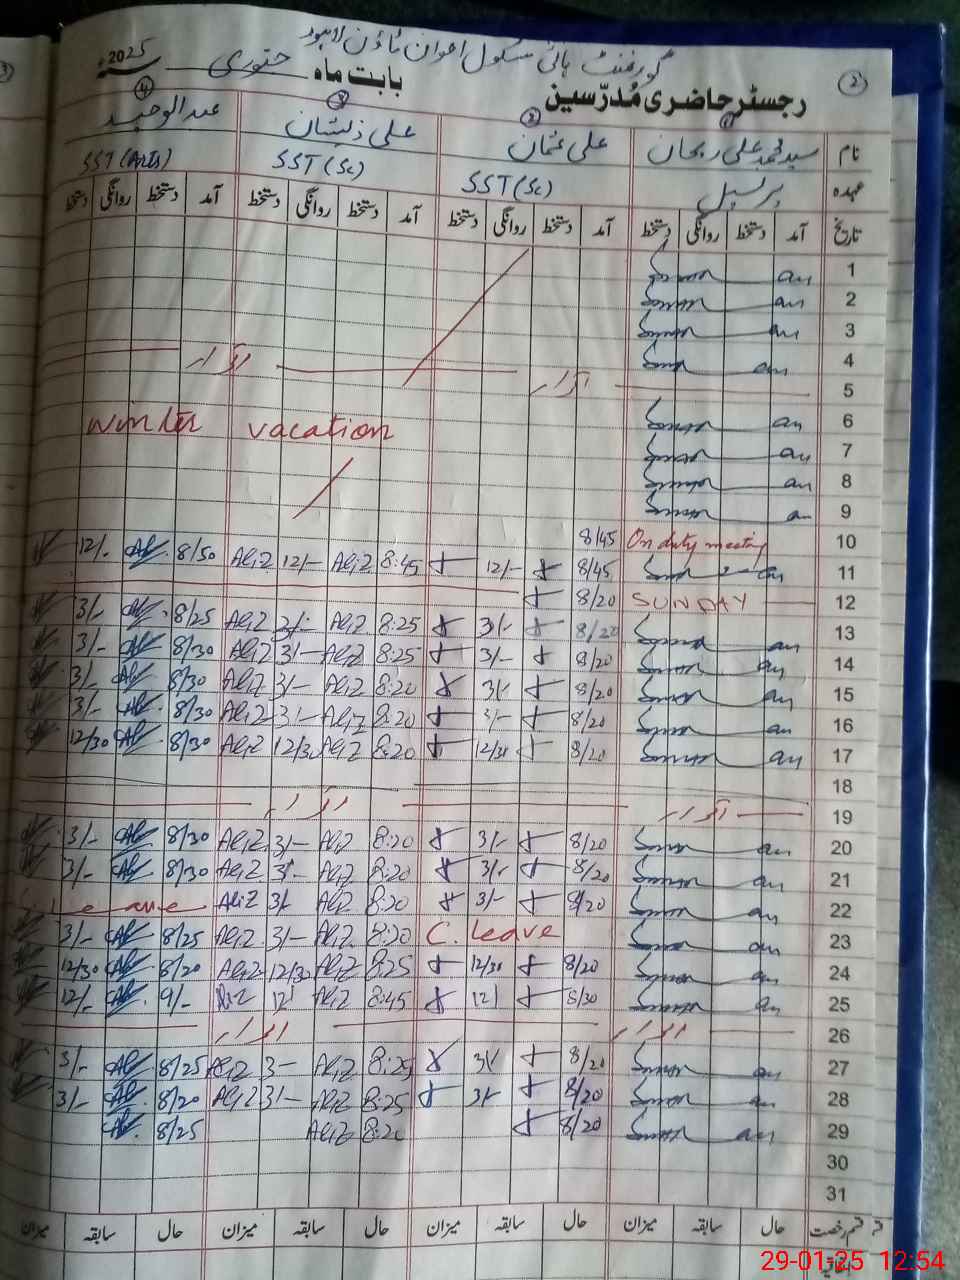 گورنمنٹ ہائی سکول اعوان ٹاؤن لاہور
رجسٹر حاضری مُدرّسین بابت ماہ جنوری 2025ء
نام سید محمد علی ریحان علی عثمان علی ذیشان عبدالوحید
عہدہ پرنسپل SST (Sc) SST (Sc) SST (Arts)
تاریخ آمد دستخط روانگی دستخط آمد دستخط روانگی دستخط آمد دستخط روانگی دستخط آمد دستخط روانگی دستخط
1
2
3
4
5 اتوار اتوار
6 Winter vacation
7
8
9
10 On duty meeting 8/45
11 8/45 12/- 8:45 AliZ 12/- AliZ 8/50 12/-
12 SUNDAY 8/20
13 8/20 3/- 8:25 AliZ 3/- AliZ 8/25 3/-
14 8/20 3/- 8:25 AliZ 3/- AliZ 8/30 3/-
15 8/20 3/- 8:20 AliZ 3/- AliZ 8/30 3/-
16 8/20 3/- 8:20 AliZ 3/- AliZ 8/30 3/-
17 8/20 12/30 8:20 AliZ 12/30 AliZ 8/30 12/30
18
19 اتوار اتوار
20 8/20 3/- 8:20 AliZ 3/- AliZ 8/30 3/-
21 8/20 3/- 8:20 AliZ 3/- AliZ 8/30 3/-
22 8/20 3/- 8:20 AliZ 3/- AliZ
23 C. Leave 8:20 AliZ 3/- AliZ 8/25 3/-
24 8/20 12/30 8:25 AliZ 12/30 AliZ 8/20 12/30
25 8/30 12/ 8:45 AliZ 12/ AliZ 9/- 12/-
26 اتوار اتوار
27 8/20 3/ 8:25 AliZ 3- AliZ 8/25 3/-
28 8/20 3/- 8:25 AliZ 3/- AliZ 8/20 3/-
29 8/20 8:20 AliZ 8/25
30
31
قسم رخصت حال سابقہ میزان حال سابقہ میزان حال سابقہ میزان حال سابقہ میزان
اتفاقیہ
29-01-25 12:54